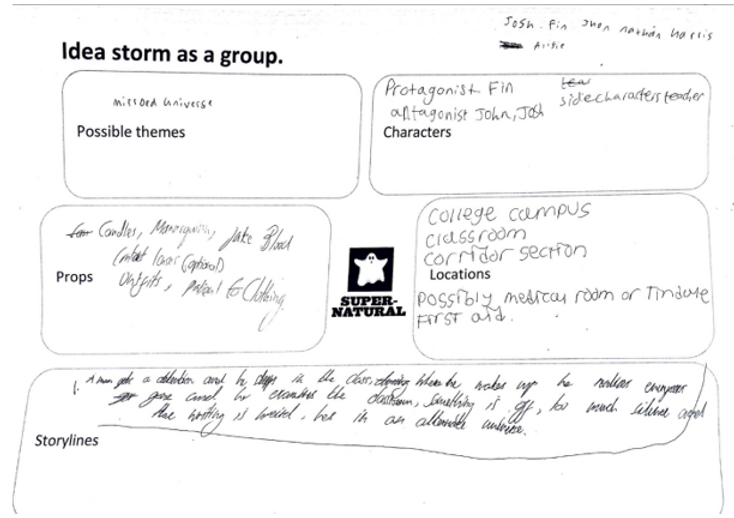 Josh. Fin Jhon nathan harris
Artie
Idea storm as a group.
mirrored universe
Possible themes
Protagonist Fin
antagonist John, Josh
sidecharacters teacher
Characters
Candles, Mannequin, fake Blood
(optional)
Outfits, Clothing.
Props
SUPER-
NATURAL
College campus
classroom
corridor section
Locations
possibly medical room or Tindale
First aid.
1. A man gets a detention and he sleeps in the class, when he wakes up he notices everyones
gone and he examines the classroom, something is off, too much silence and
the writing is weird, hes in an alternate universe.
Storylines